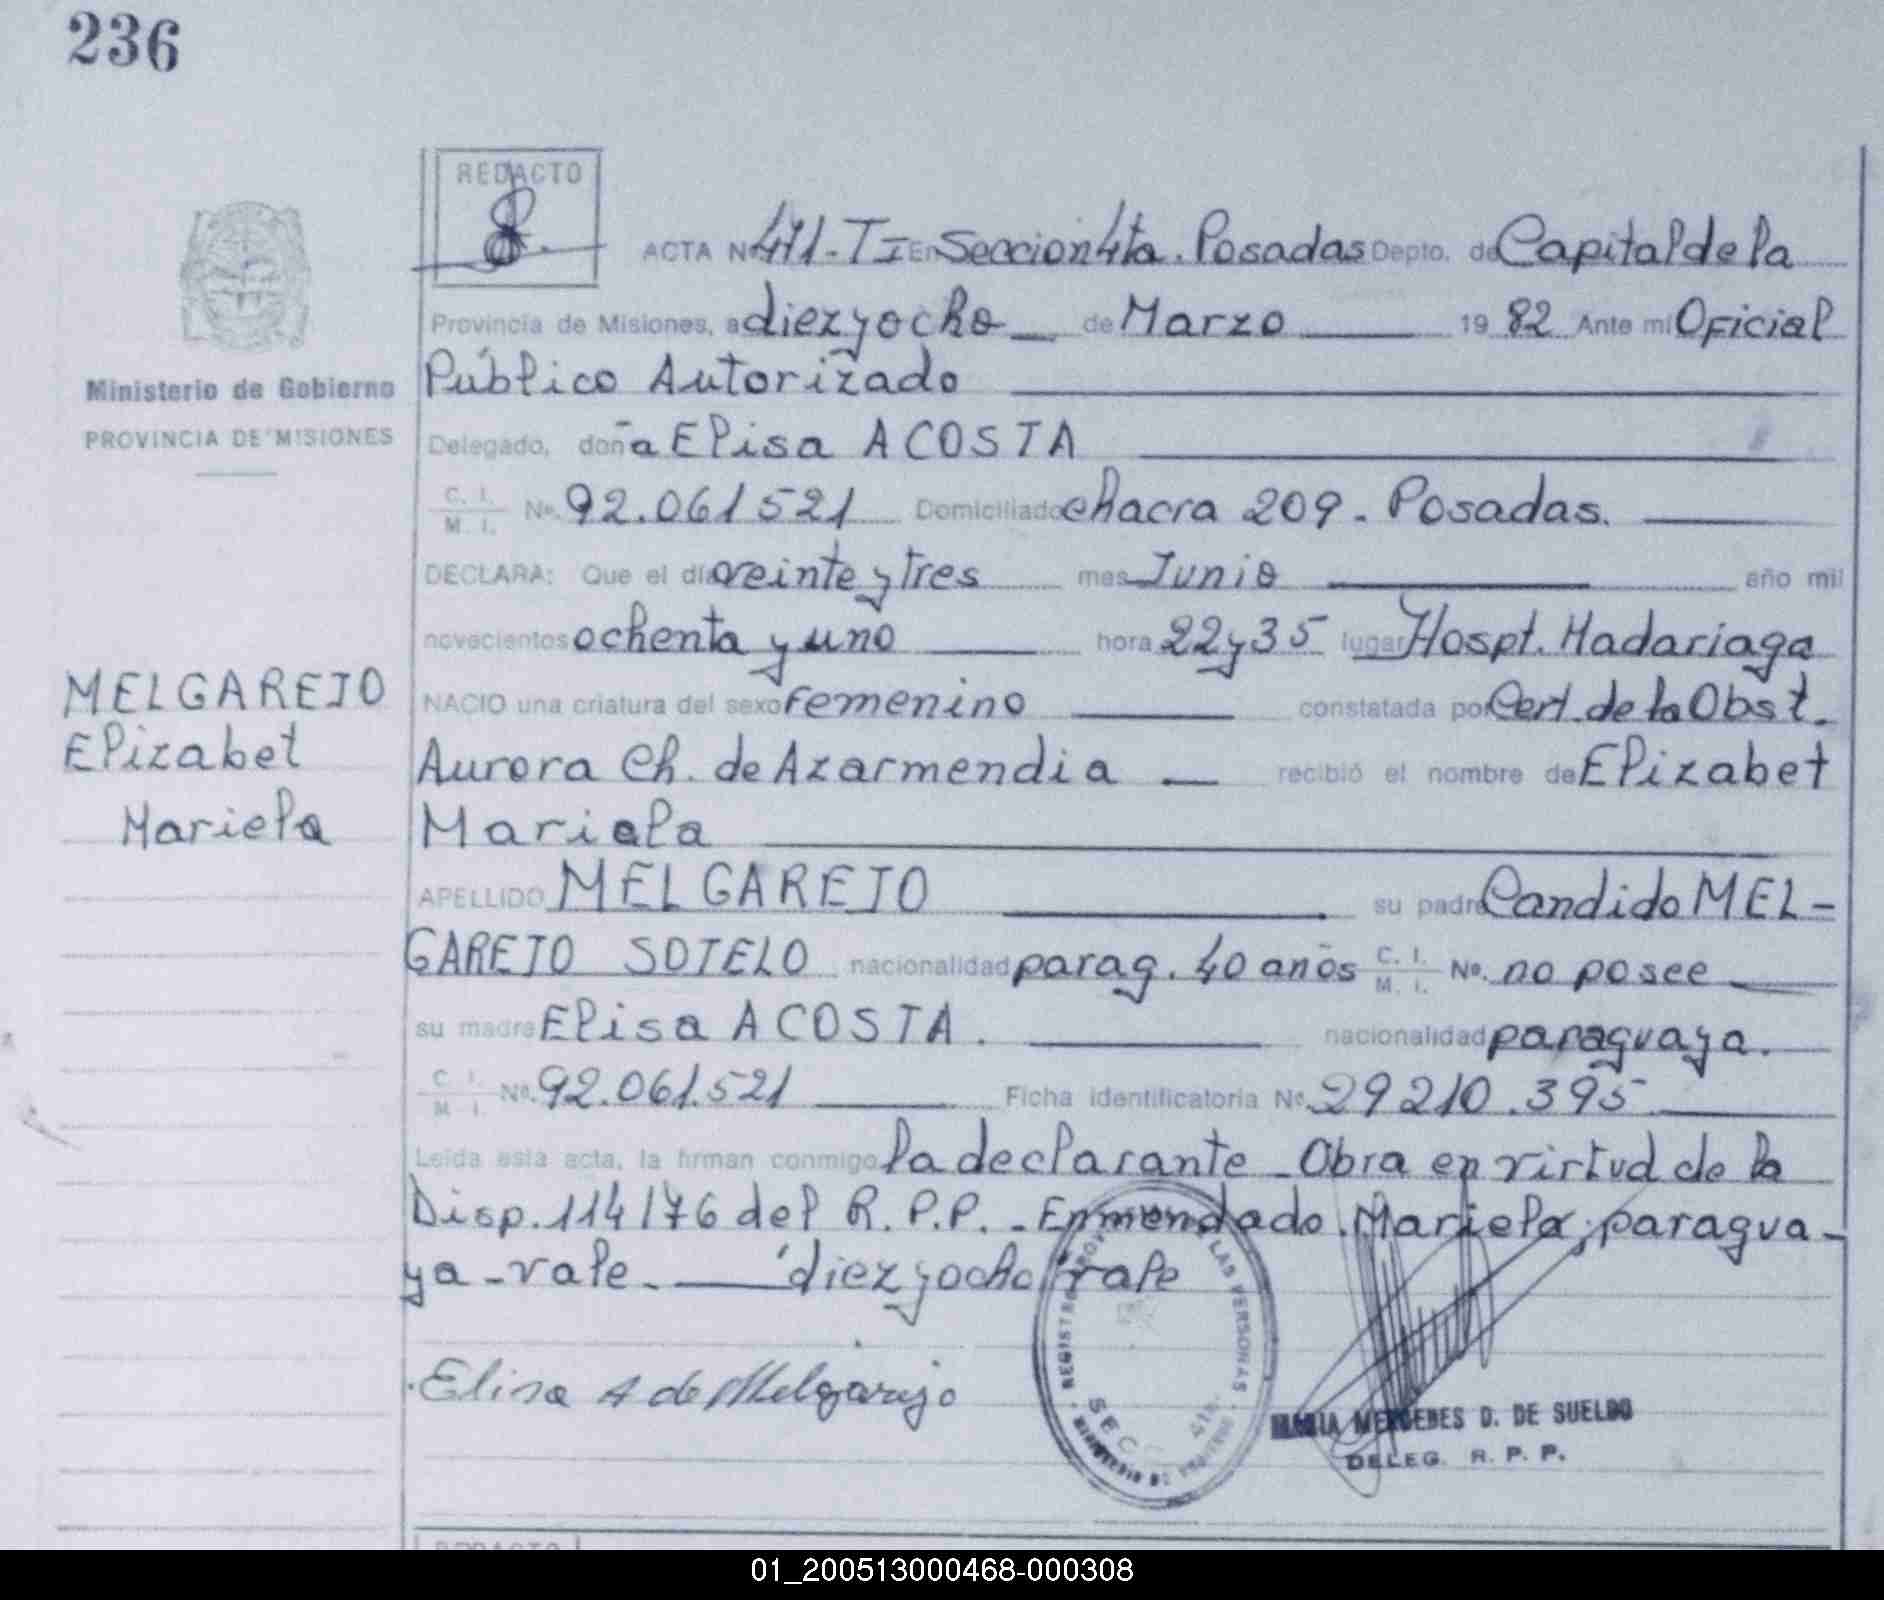 236
REDACTO
ACTA Nº 471-T I En Seccion 4ta. Posadas Depto. de Capital de la
Provincia de Misiones, a diez y ocho de Marzo 19 82 Ante mi Oficial
Ministerio de Gobierno
Público Autorizado
PROVINCIA DE MISIONES
Delegado, doña Elisa ACOSTA
C. I. M. I. Nº. 92.061521 Domiciliado chacra 209 - Posadas.
DECLARA: Que el día veinte y tres mes Junio año mil
novecientos ochenta y uno hora 22 y 35 lugar Hospt. Madariaga
MELGAREJO
NACIO una criatura del sexo femenino constatada por Cert. de la Obst.
Elizabet
Aurora Ch. de Azarmendia recibió el nombre de Elizabet
Mariela
Mariela
APELLIDO MELGAREJO su padre Candido MEL-
GAREJO SOTELO nacionalidad parag. 40 años C. I. M. I. Nº. no posee
su madre Elisa ACOSTA. nacionalidad paraguaya.
C. I. M. I. Nº. 92.061.521 Ficha identificatoria Nº. 29210.395
Leída esta acta, la firman conmigo la declarante - Obra en virtud de la
Disp. 114/76 del R.P.P. - Enmendado. Mariela; paragua-
ya - vale - diez y ocho vale
REGISTRO PROVINCIAL DE LAS PERSONAS
SECC. 4ta.
MINISTERIO DE GOBIERNO
Elisa A de Melgarejo
MARIA MERCEDES D. DE SUELDO
DELEG. R. P. P.
REDACTO
01_200513000468-000308